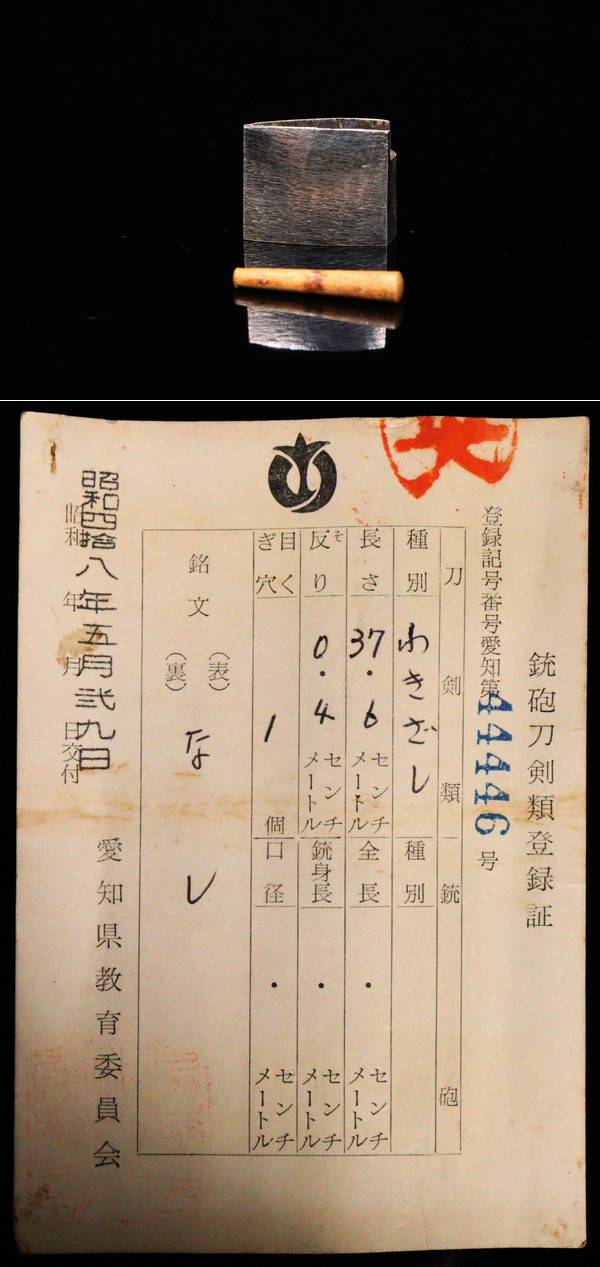 銃砲刀剣類登録証
登録記号番号愛知第44446号
刀剣類
銃砲
種別 わきざし
種別
長さ 37.6 センチメートル
全長 ・ センチメートル
反り そ 0.4 センチメートル
銃身長 ・ センチメートル
目くぎ穴 1 個
口径 ・ センチメートル
銘文
(表)
(裏)
なし
昭和四拾八年五月弐九日
昭和 年 月 日交付
愛知県教育委員会